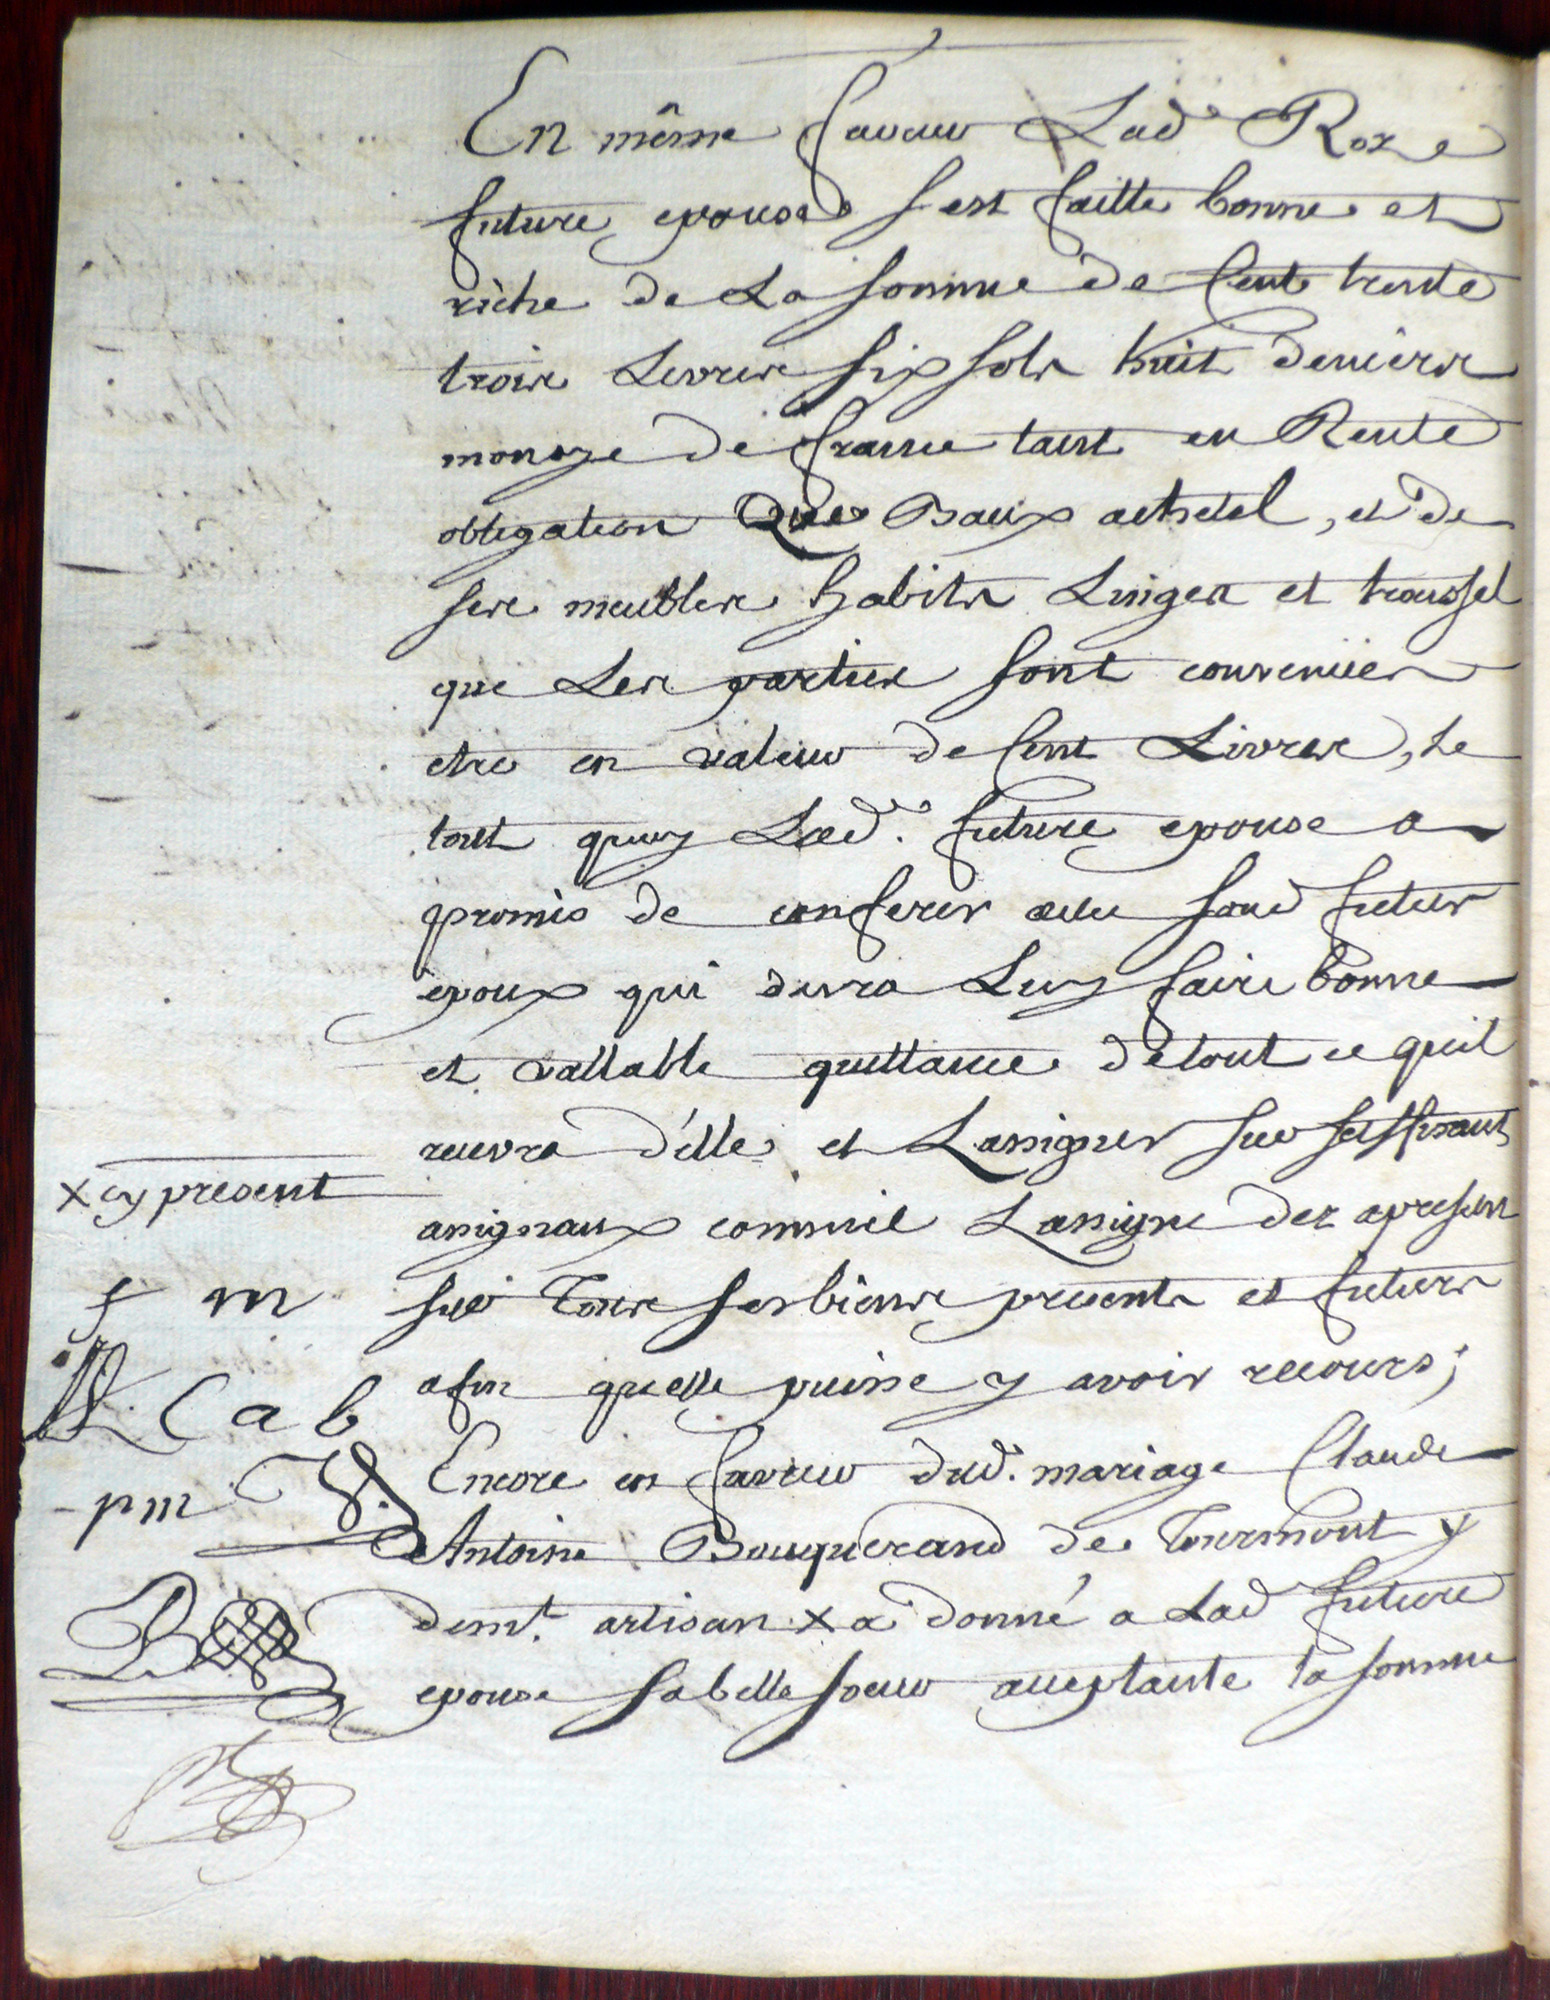 En même faveur Lad Roze
future epouse s'est faitte bonne et
riche de La somme de Cent trente
trois Livres six sols huit deniers
monoye de france tant en Rente
obligation Que Baux achetel, et de
ses meubles habits Linges et troussel
que Les parties sont convenües
etre en valeur de Cent Livres, le
tout quoy Lad. future epouse a
promis de conferer avec soud futur
époux qui devra Luy faire bonne
et vallable quittance de tout ce quil
recevra d'elle et Lassigner sur
assignaux comm'il Lassigne dez apresent
sur Tous ses biens presents et futurs
afin quelle puisse y avoir recours;
Encore en faveur dud. mariage Claude
Antoine Bouquerand de Tourmont y
demt. artisan x a donné a Lad future
epouse sa belle soeur acceptante la somme
x cy present
f m
C a b
p m